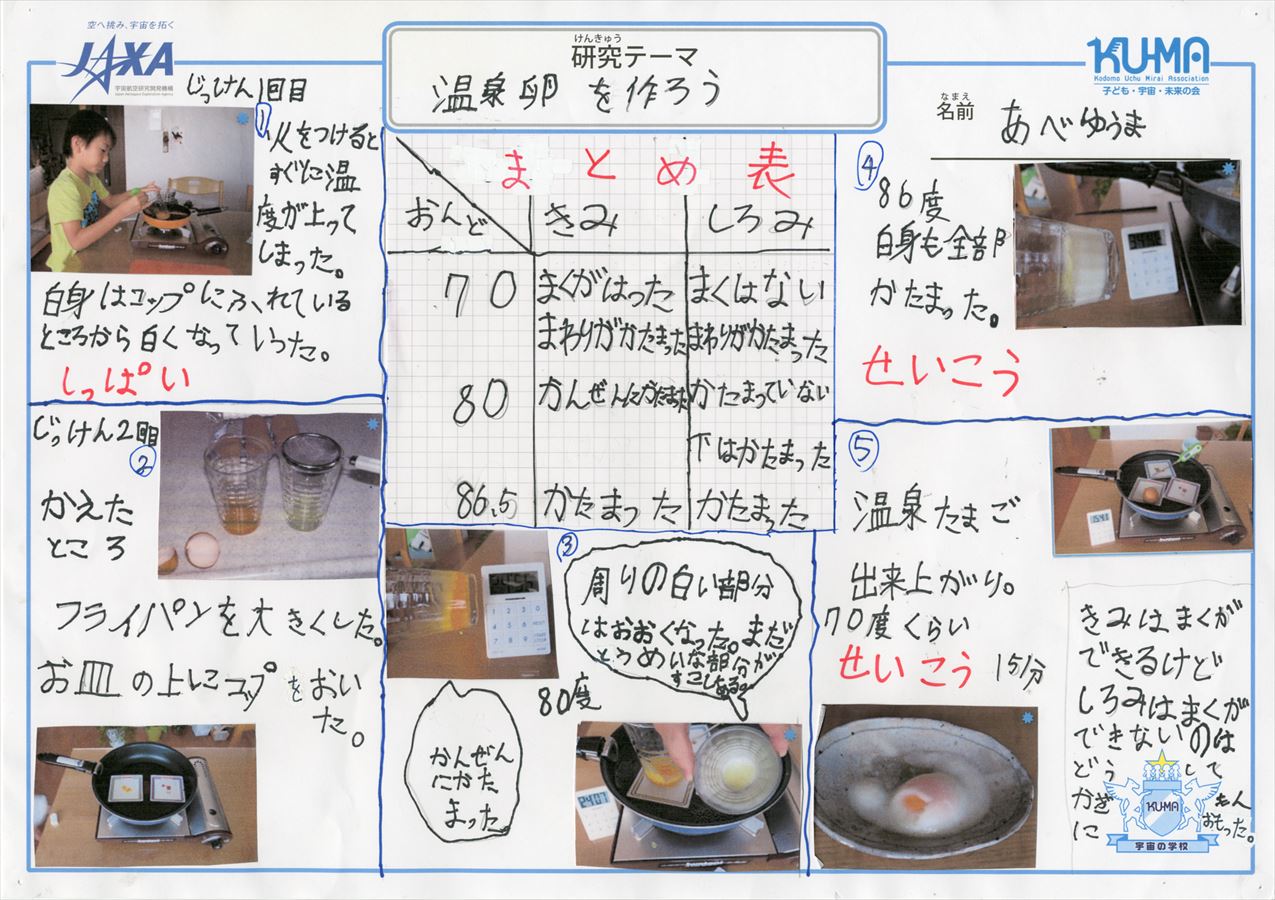 空へ挑み、宇宙を拓く
JAXA
宇宙航空研究開発機構
Japan Aerospace Exploration Agency
けんきゅう
研究テーマ
温泉卵を作ろう
KU-MA
Kodomo Uchu Mirai Association
子ども・宇宙・未来の会
なまえ
名前
あべゆうま
じっけん1回目
①
火をつけると
すぐに温
度が上って
しまった。
白身はコップにふれている
ところから白くなっていった。
しっぱい
じっけん2回目
②
かえた
ところ
フライパンを大きくした。
お皿の上にコップをおい
た。
まとめ表
おんど きみ しろみ
70 まくがはった まくはない
まわりがかたまった まわりがかたまった
80 かんぜんにかたまった かたまっていない
下はかたまった
86.5 かたまった かたまった
③
周りの白い部分
はおおくなった。まだ
とうめいな部分が
すこしある。
80度
かんぜん
にかた
まった
2407
④
86度
白身も全部
かたまった。
せいこう
⑤
温泉たまご
出来上がり。
70度くらい
せいこう 15分
きみはまくが
できるけど
しろみはまくが
できないのは
どうして
かぎもん
におもった。
KU-MA
宇宙の学校